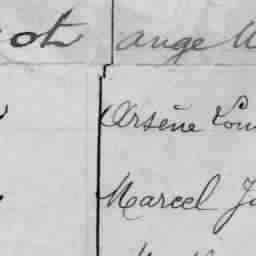 ot ange
Arsène Lou
Marcel J